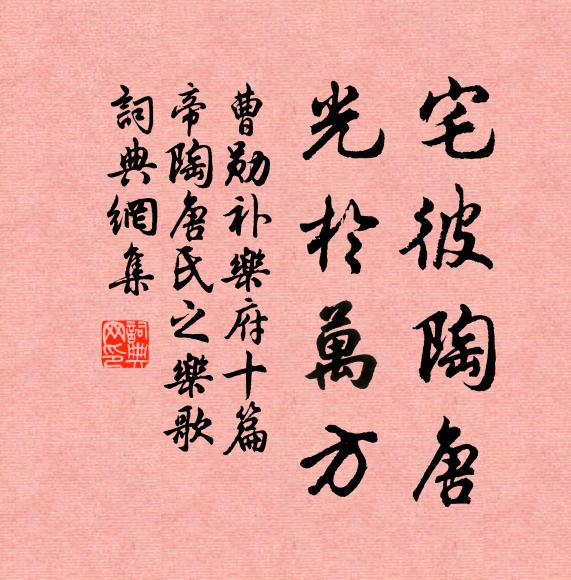 宅彼陶唐
光於萬方
曹勛补樂府十篇
帝陶唐氏之樂歌
詞典網集
詞典网印